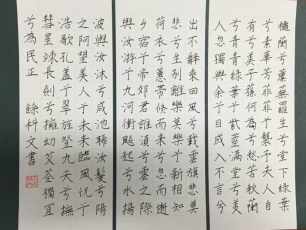 龝蘭兮蘪蕪羅生兮堂下綠葉
兮素華芳菲菲兮襲予夫人自
有兮美子蓀何為兮愁苦秋蘭
兮青青綠葉兮紫莖滿堂兮美
人忽獨與余兮目成入不言兮
出不辭乘回風兮載雲旗悲莫
悲兮生別離樂莫樂兮新相知
荷衣兮蕙帶儵而來兮忽而逝
夕宿兮帝郊君誰須兮雲之際
與汝游兮九河衝飈起兮水揚
波與汝沐兮咸池晞汝髮兮陽
之阿望美人兮未來臨風怳兮
浩歌孔蓋兮翠旌登九天兮撫
彗星竦長劍兮擁幼艾荃獨宜
兮為民正 竹文書